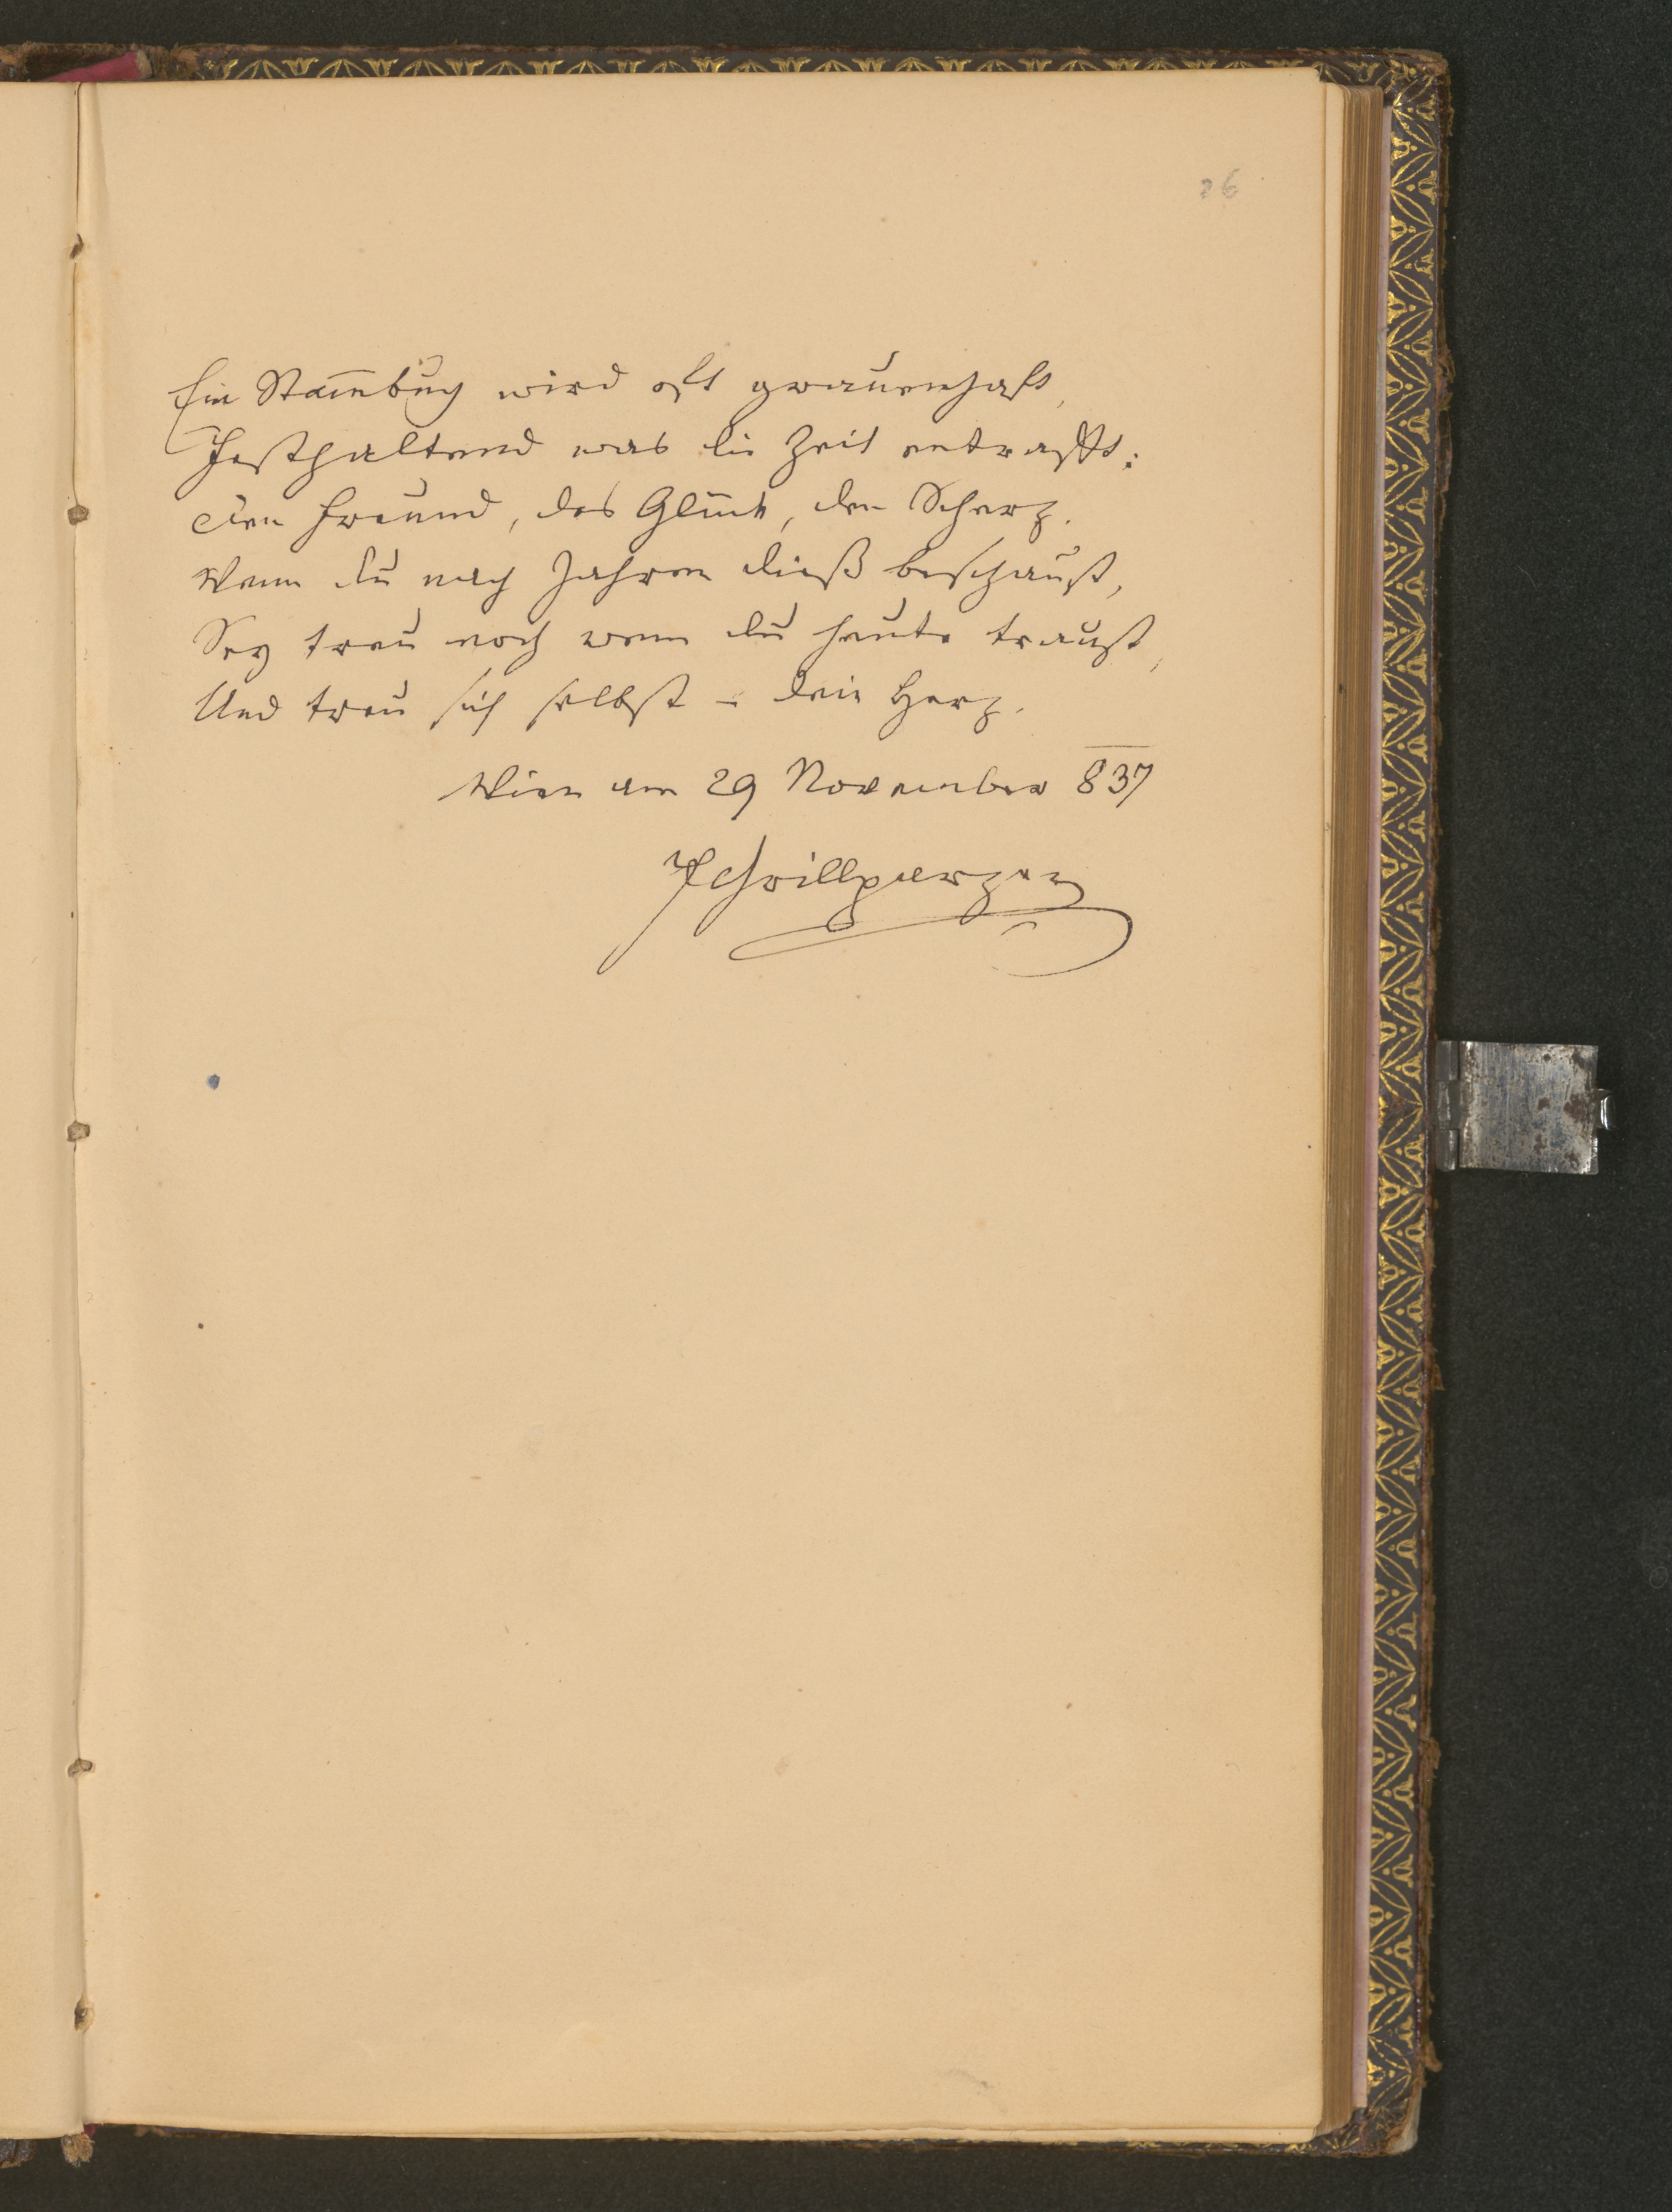 26
Ein Stam̄buch wird oft grauenhaft,
Festhaltend was die Zeit entrafft:
Den Freund, das Glück, den Scherz.
Wenn du nach Jahren dieß beschaust,
Sey treu noch wem du heute traust,
Und treu sich selbst – dein Herz.
Wien am 29 November 837
FGrillparzer